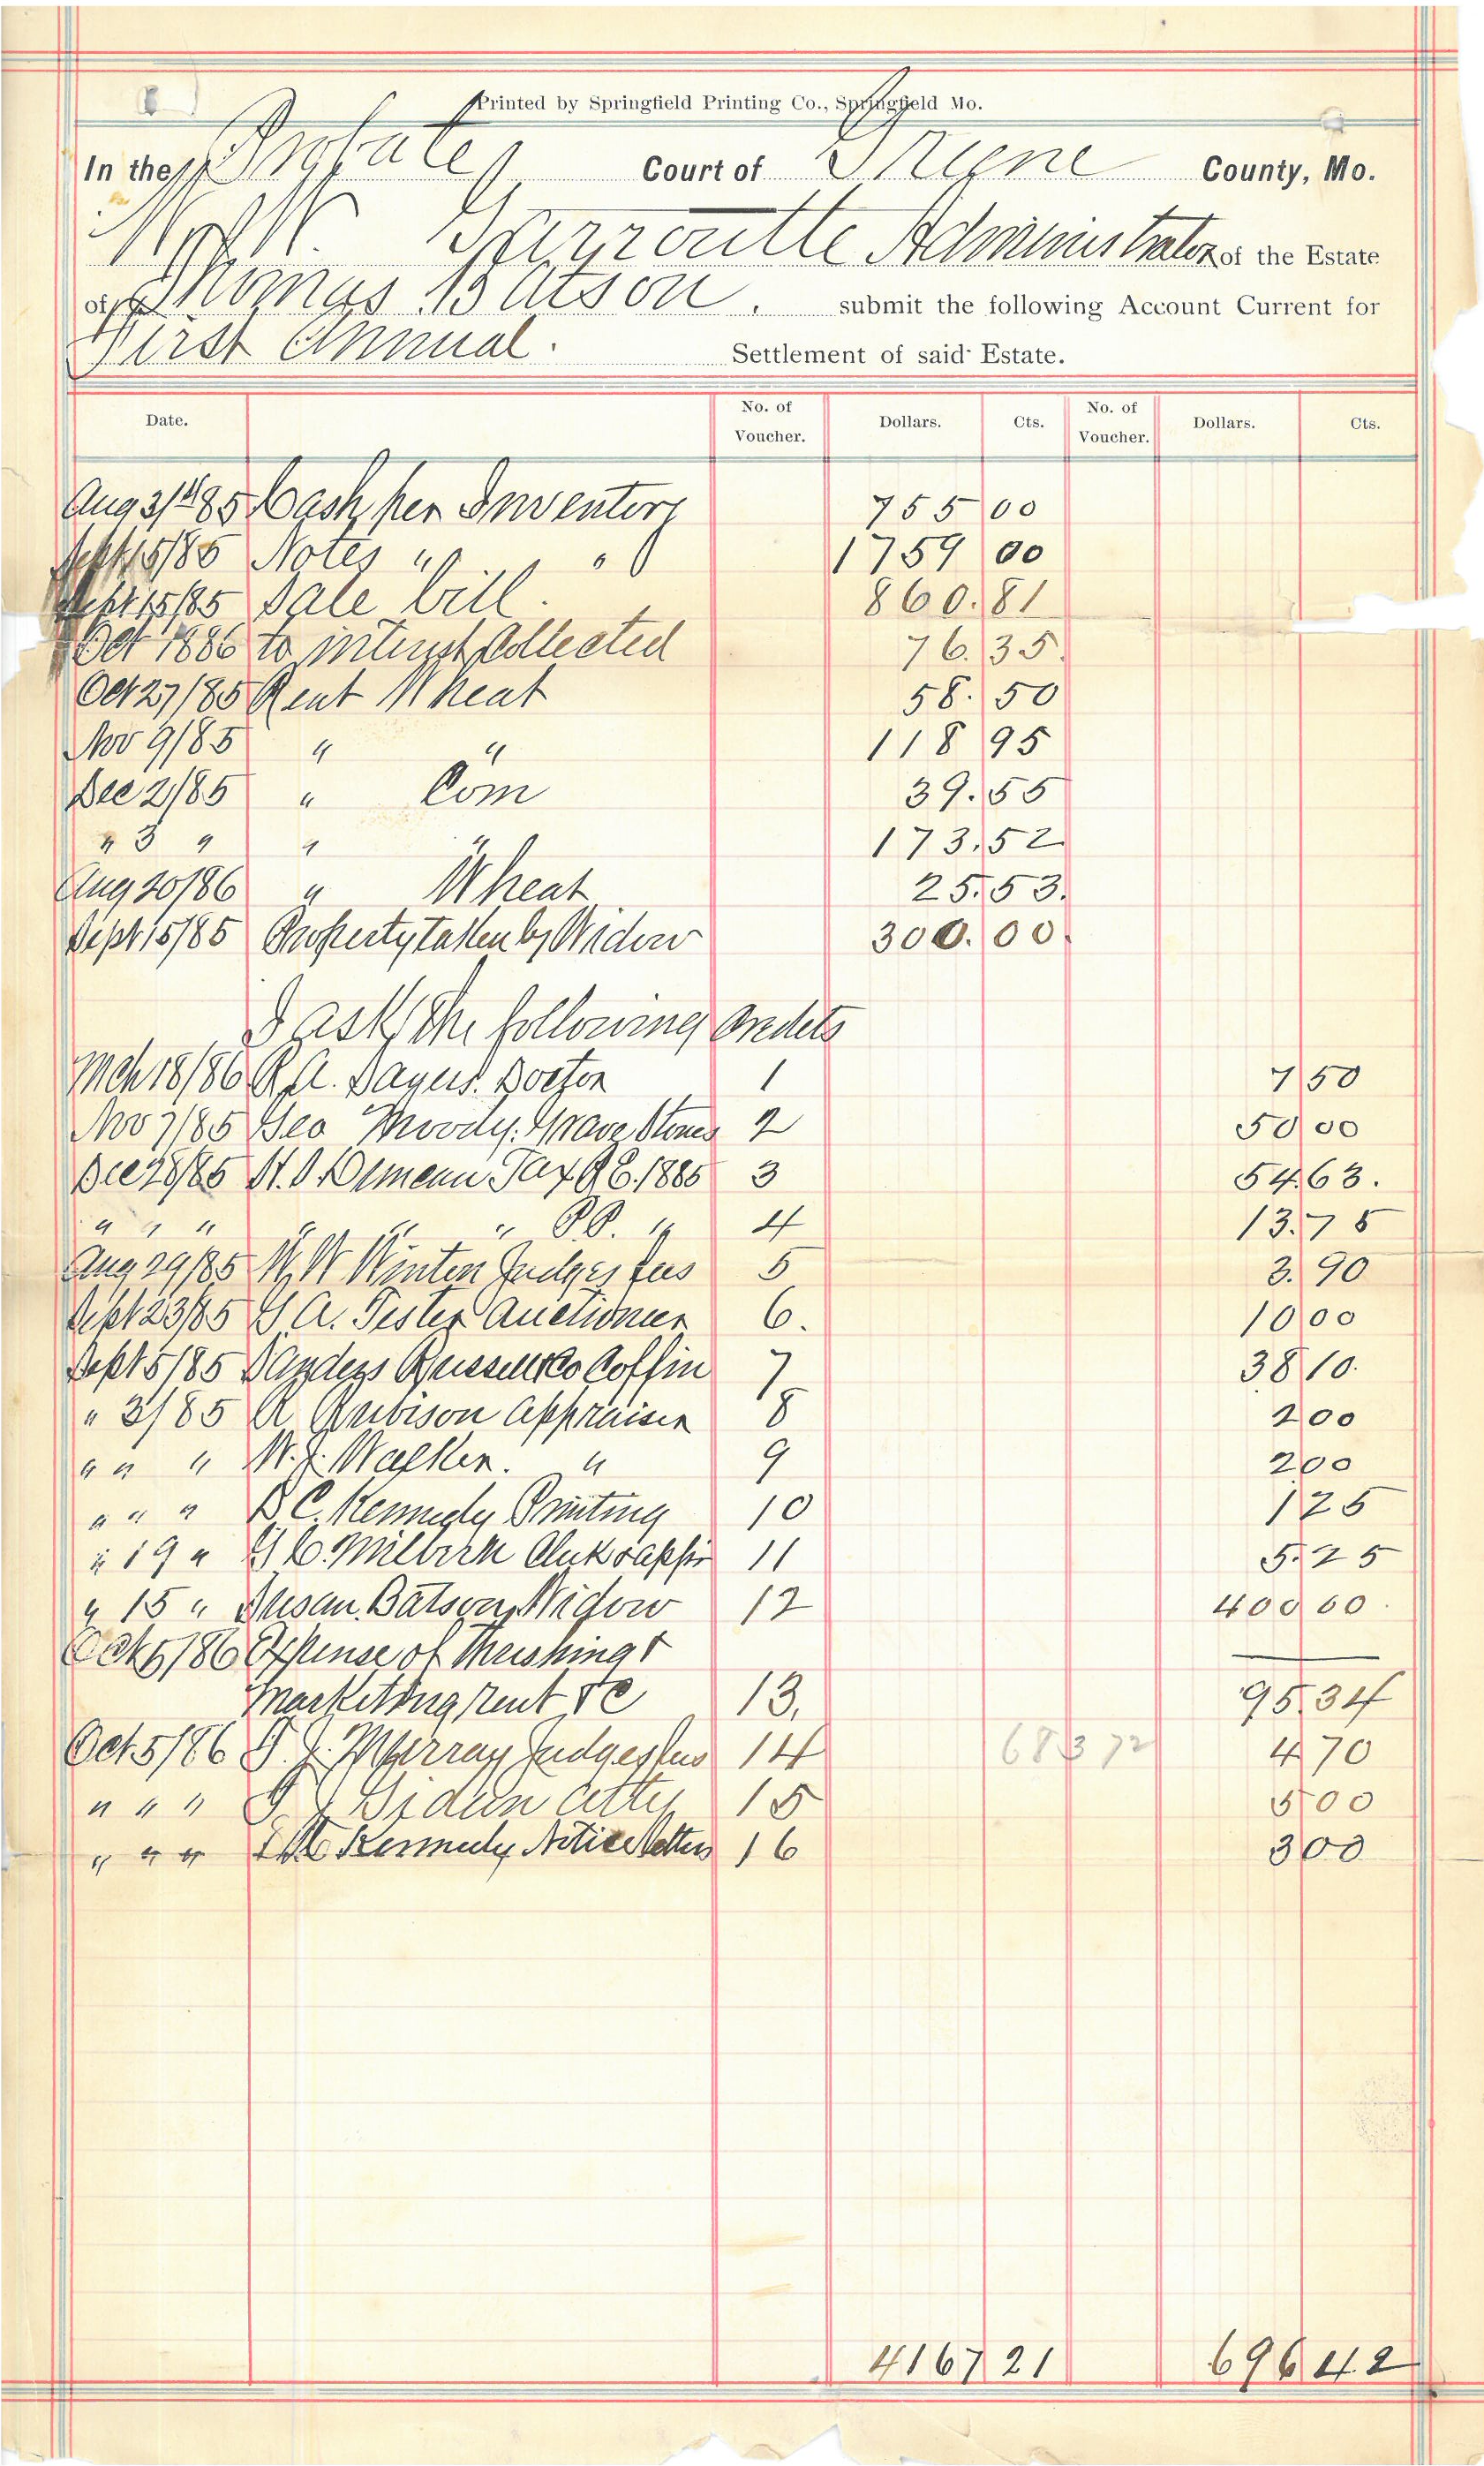 Printed by Springfield Printing Co., Springfield Mo.
In the Probate Court of Greene County, Mo.
Garroutte Administrator of the Estate
of Thomas Batson. submit the following Account Current for
First Annual. Settlement of said Estate.
Date. No. of Voucher. Dollars. Cts. No. of Voucher. Dollars. Cts.
Aug 31st 85 Cash per Inventory 755 00
Sept 15/85 Notes " " 1759 00
Sept 15/85 Sale bill. 860.81
Oct 1886 to interest Collected 76.35
Oct 27/85 Rent Wheat 58.50
Nov 9/85 " " 118 95
Dec 2/85 " Corn 39.55
" 3 " " " 173.52
Aug 20/86 " Wheat 25.53.
Sept 15/85 Property taken by Widow 300.00.
I ask the following Credits
Mch 18/86 R.A. Sayers. Doctor 1 7 50
Nov 7/85 Geo Moody. Grave Stones 2 50 00
Dec 28/85 Tax R E. 1885 3 54.63.
" " " " " " P.P. " 4 13.75
Aug 29/85 W.W Winten Judges fees 5 3.90
Sept 23/85 A. Tester Auctioneer 6. 10 00
Sept 5/85 Russell & Co Coffin 7 38 10.
" 3/85 R Rubison Appraiser 8 2 00
" " " W.J. Walker. " 9 2 00
" " " Kennedy Printing 10 1 25
" 19 " Milbirn Clerk & appr 11 5.25
" 15 " Susan. Batson Widow 12 400 00.
Oct 5/86 Expense of Threshing &
Marketing rent &c 13. 95.34
Oct 5/86 J. Murray Judges fees 14 683 72 4 70
" " " Atty 15 5 00
" " " Kennedy Notice letters 16 3 00
4167 21 696 42